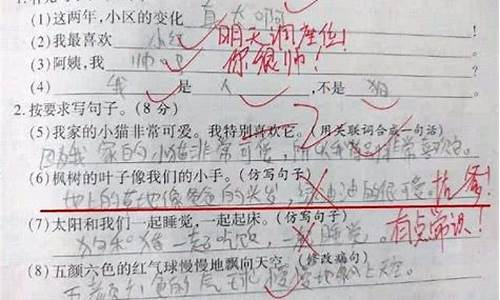 (1)这两年,小区的变化 真大啊
(2)我最喜欢 小红 明天调座位!
(3)阿姨,我 帅吧 你很帅!
(4) 我 是 人 ,不是 狗
2.按要求写句子。(8 分)
(5)我家的小猫非常可爱。我特别喜欢它。(用关联词合成一句话)
因为我家的小猫非常可爱,所以我特别非常喜欢它。
(6)枫树的叶子像我们的小手。(仿写句子)
地上的草地像爸爸的头发,绿油油的很可爱。
(7)太阳和我们一起睡觉,一起起床。(仿写句子) 有点常识!
一起吃饭,一起睡觉。
(8)五颜六色的红气球慢慢地飘向天空。(修改病句)
五颜六色的气球慢慢地飘上天空。